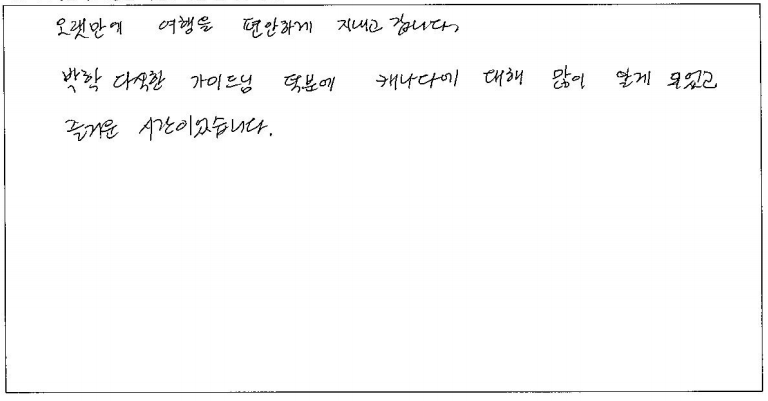 오랫만에 여행을 편안하게 지내고 갑니다.
박학 다식한 가이드님 덕분에 캐나다에 대해 많이 알게 되었고
즐거운 시간이었습니다.